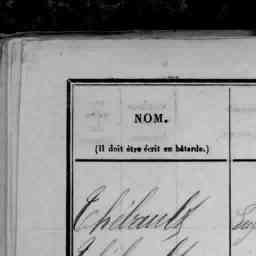 NOM.
(Il doit être écrit en bâtarde.)
Thibault